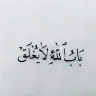 بَابُ اللَّهِ لَا يُغْلَقْ